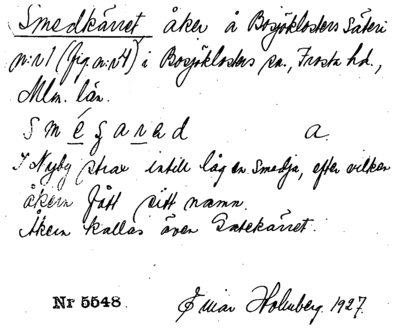 Smedkärret åker å Bosjöklosters Säteri
n:r 1 (fig. n:r 4) i Bosjöklosters sn., Frosta hd.,
Mlm. län.
S m é g a r e d a.
I Nyby strax intill låg en smedja, efter vilken
åkern fått sitt namn.
Åkern kallas även Gatekärret.
Nr 5548. Ejnar Holmberg. 1927.